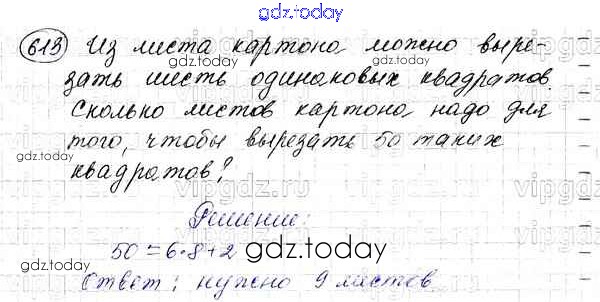 gdz.today
613 Из листа картона можно выре-
зать шесть одинаковых квадратов.
Сколько листов картона надо для
того, чтобы вырезать 50 таких
gdz.today
квадратов?
Решение:
50=6·8+2
gdz.today
gdz.today
Ответ: нужно 9 листов